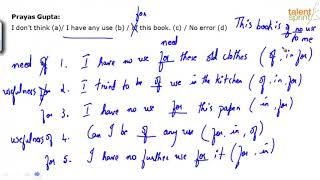 talent
sprint
Prayas Gupta:
for
I don't think (a)/ I have any use (b) / of this book. (c) / No error (d)
This book is of no use
to me
need
need of 1. I have no use for these old clothes (of, in, for)
usefulness 2. I tried to be of use in the kitchen (of, in, for)
for 3. I have no use for this paper (in, for)
usefulness 4. Can I be of any use (for, in, of)
for 5. I have no further use for it (for, in)